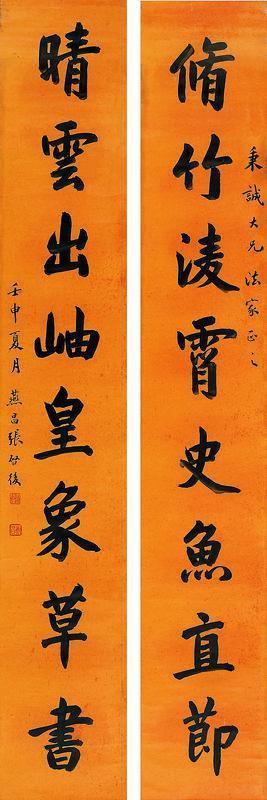 脩竹淩霄史魚直節
秉誠大兄法家正之
晴雲出岫皇象草書
壬申夏月 燕昌張啓後